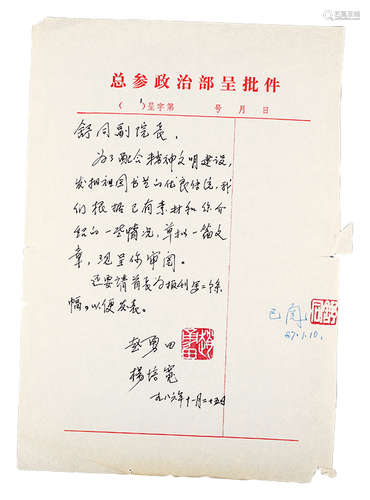 总参政治部呈批件
( )呈字第 号 月 日
舒同副院长,
为了配合精神文明建设,
发扬祖国书艺的优良传统,我
们根据已有素材和你介
绍的一些情况,草拟一篇文
章,现呈你审阅。
还要请首长为报刊写二条
幅,以便发表。
赵勇田
杨培
一九八六年十一月二十五日
已阅
87.1.10.
舒同